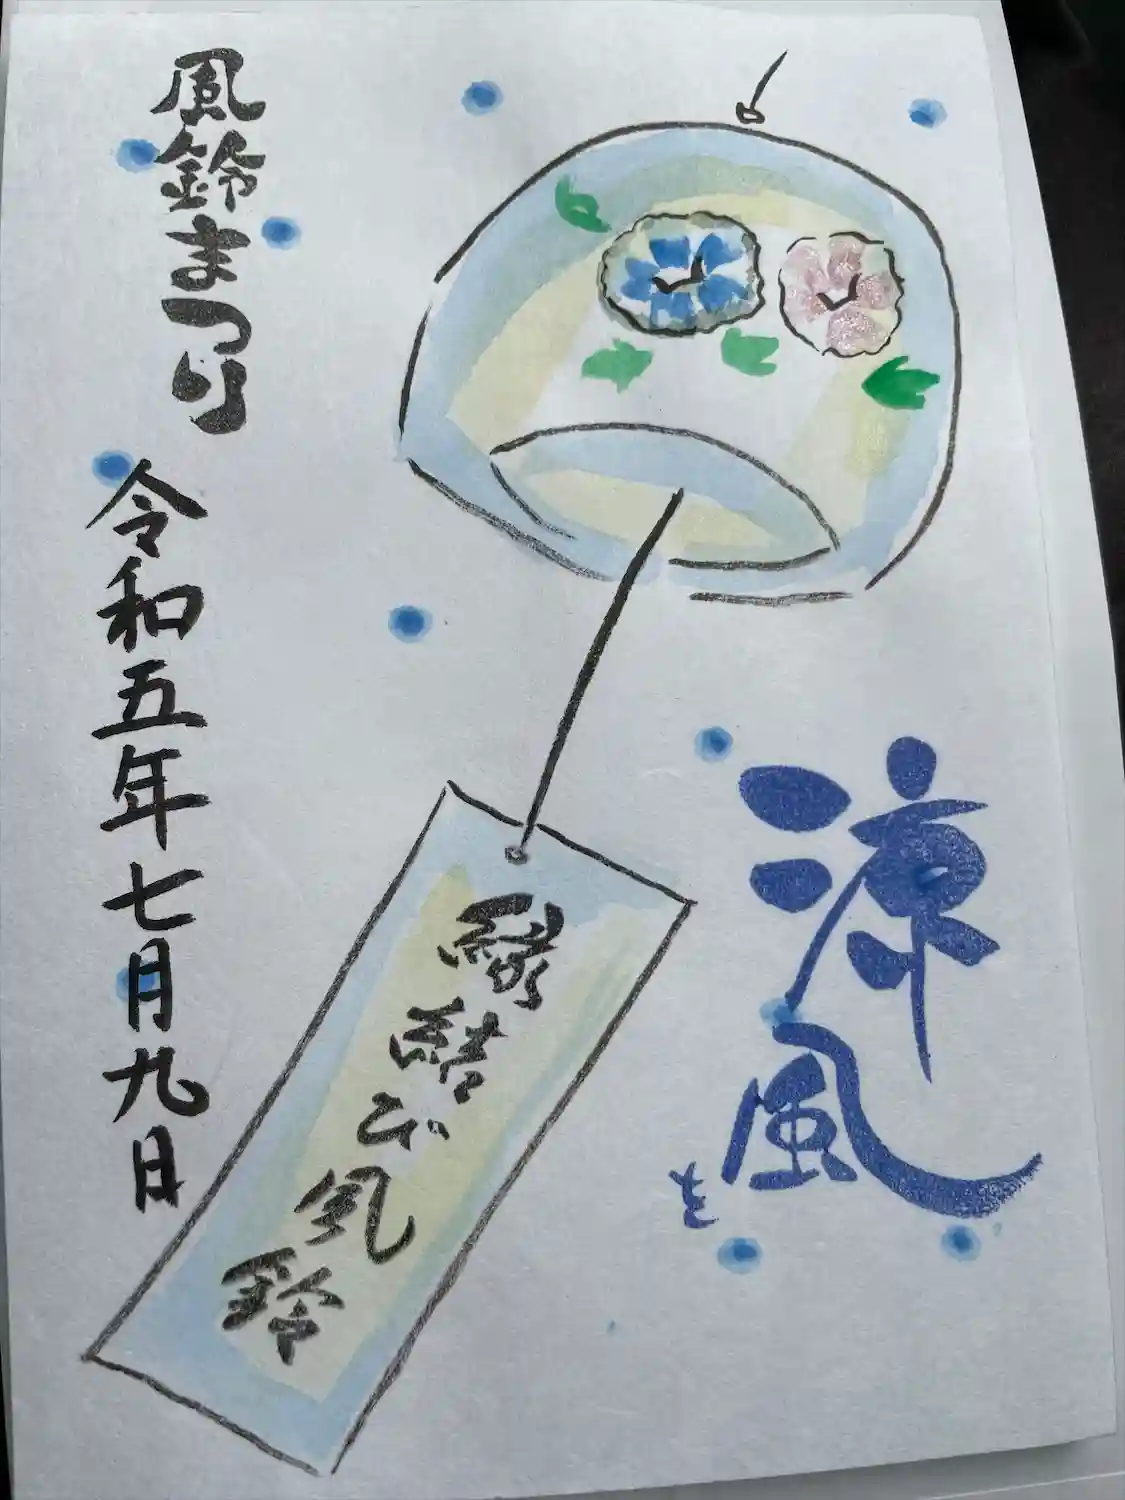 涼風
を
縁結び風鈴
風鈴まつり
令和五年七月九日